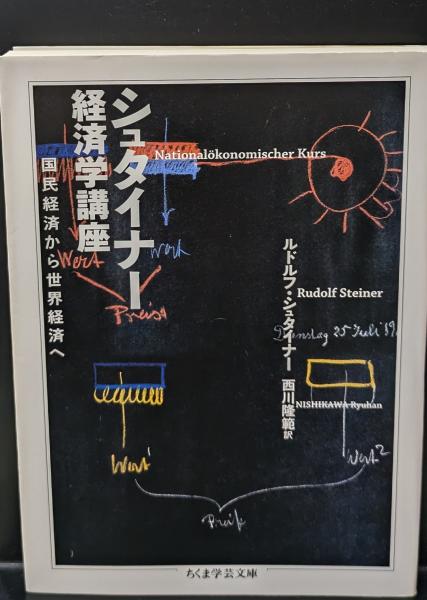 シュタイナー
経済学講座
国民経済から世界経済へ
Nationalökonomischer Kurs
ルドルフ・シュタイナー
Rudolf Steiner
西川隆範訳
NISHIKAWA Ryuhan
Wert
Wert
Preis
Dienstag 25 Juli
Wert¹
Wert²
Preis
ちくま学芸文庫